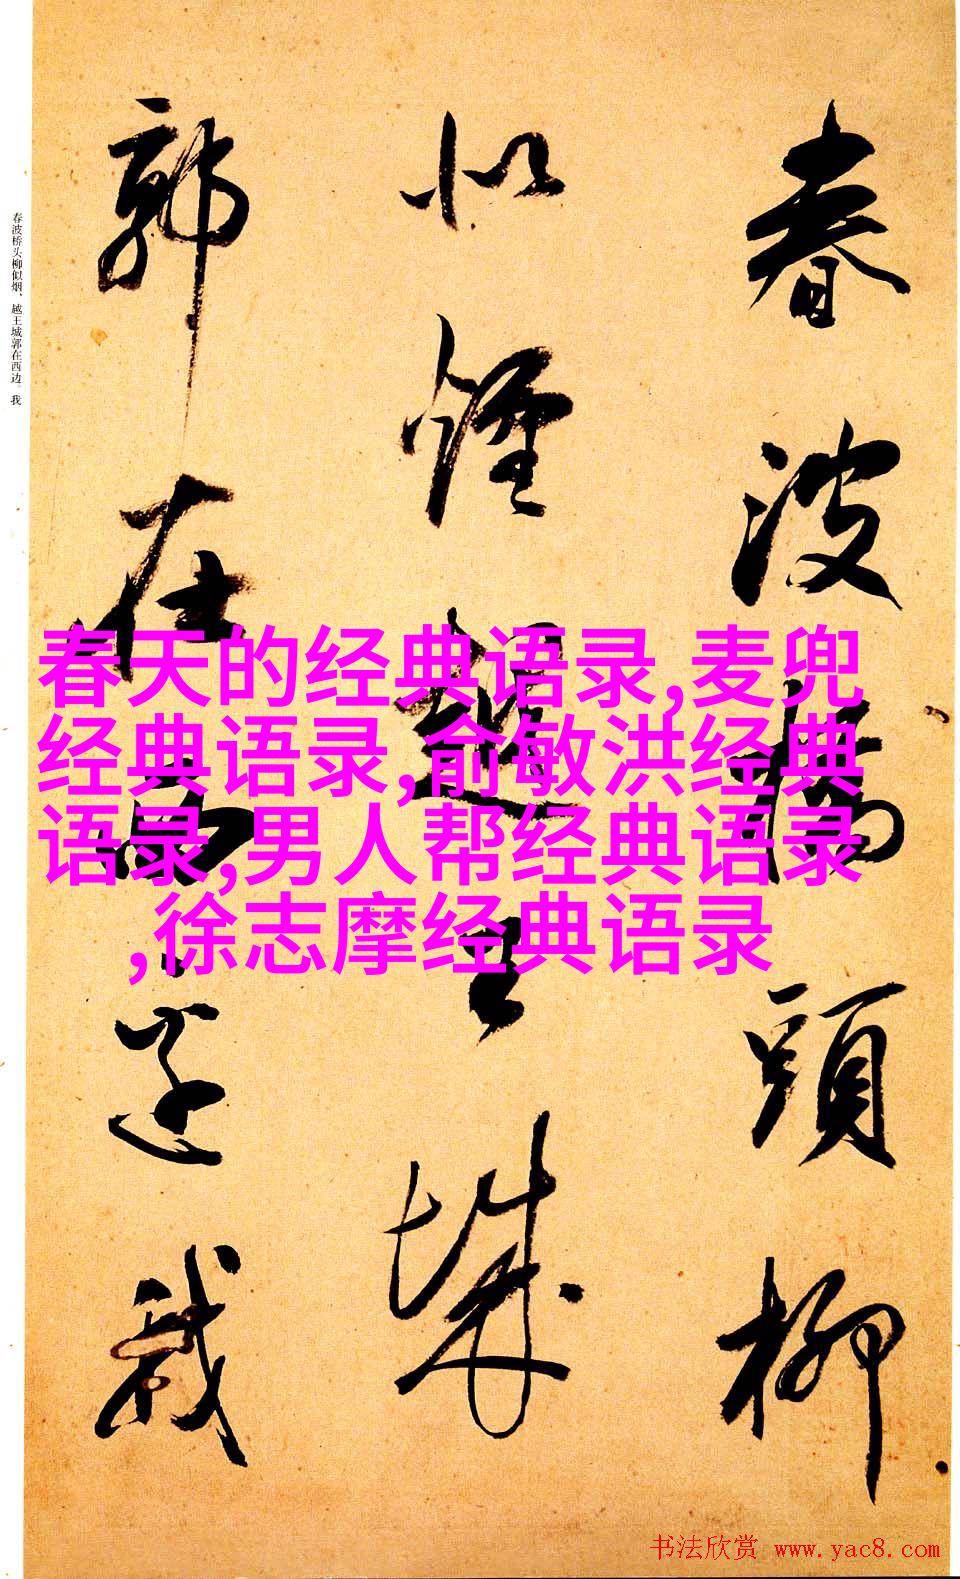 春波橋頭柳
似煙越王城
郭在西邊我
春波桥头柳似烟、越王城郭在西边。我
春天的经典语录,麦兜
经典语录,俞敏洪经典
语录,男人帮经典语录
,徐志摩经典语录
书法欣赏 www.yac8.com